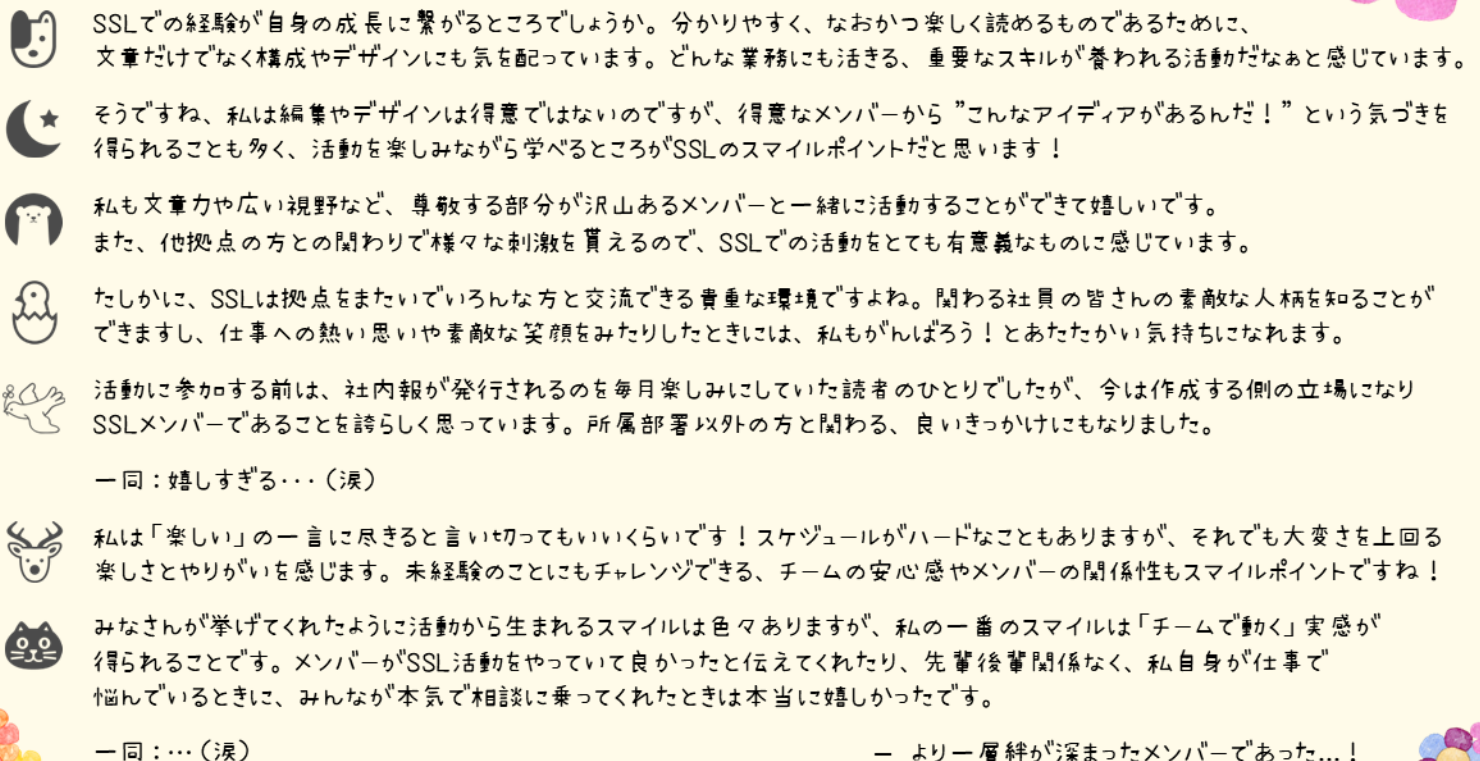 SSLでの経験が自身の成長に繋がるところでしょうか。分かりやすく、なおかつ楽しく読めるものであるために、
文章だけでなく構成やデザインにも気を配っています。どんな業務にも活きる、重要なスキルが養われる活動だなぁと感じています。
そうですね、私は編集やデザインは得意ではないのですが、得意なメンバーから ”こんなアイディアがあるんだ!” という気づきを
得られることも多く、活動を楽しみながら学べるところがSSLのスマイルポイントだと思います!
私も文章力や広い視野など、尊敬する部分が沢山あるメンバーと一緒に活動することができて嬉しいです。
また、他拠点の方との関わりで様々な刺激を貰えるので、SSLでの活動をとても有意義なものに感じています。
たしかに、SSLは拠点をまたいでいろんな方と交流できる貴重な環境ですよね。関わる社員の皆さんの素敵な人柄を知ることが
できますし、仕事への熱い思いや素敵な笑顔をみたりしたときには、私もがんばろう!とあたたかい気持ちになれます。
活動に参加する前は、社内報が発行されるのを毎月楽しみにしていた読者のひとりでしたが、今は作成する側の立場になり
SSLメンバーであることを誇らしく思っています。所属部署以外の方と関わる、良いきっかけにもなりました。
一同:嬉しすぎる・・・(涙)
私は「楽しい」の一言に尽きると言い切ってもいいくらいです!スケジュールがハードなこともありますが、それでも大変さを上回る
楽しさとやりがいを感じます。未経験のことにもチャレンジできる、チームの安心感やメンバーの関係性もスマイルポイントですね!
みなさんが挙げてくれたように活動から生まれるスマイルは色々ありますが、私の一番のスマイルは「チームで動く」実感が
得られることです。メンバーがSSL活動をやっていて良かったと伝えてくれたり、先輩後輩関係なく、私自身が仕事で
悩んでいるときに、みんなが本気で相談に乗ってくれたときは本当に嬉しかったです。
一同:…(涙)
― より一層絆が深まったメンバーであった…!